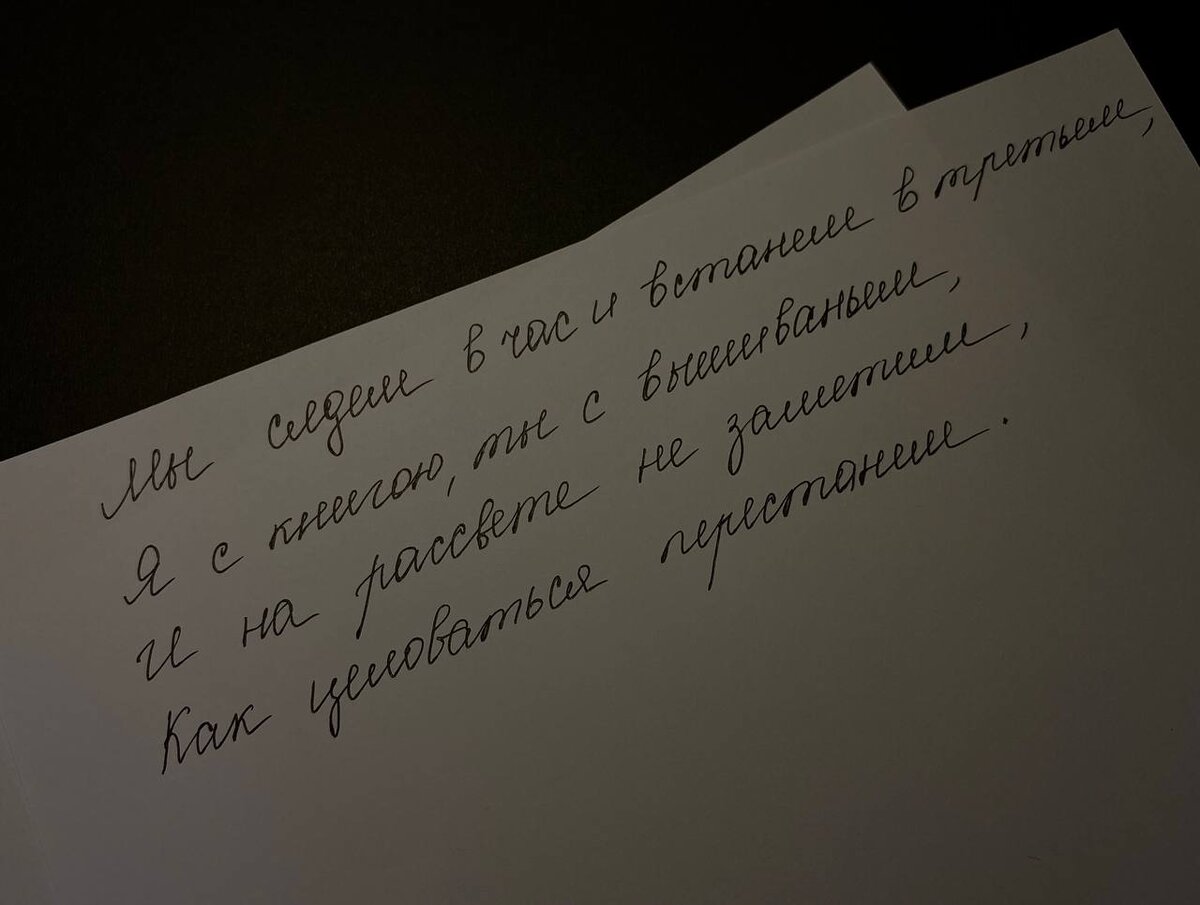 Мы сядем в час и встанем в третьем,
Я с книгою, ты с вышиваньем,
И на рассвете не заметим,
Как целоваться перестанем.